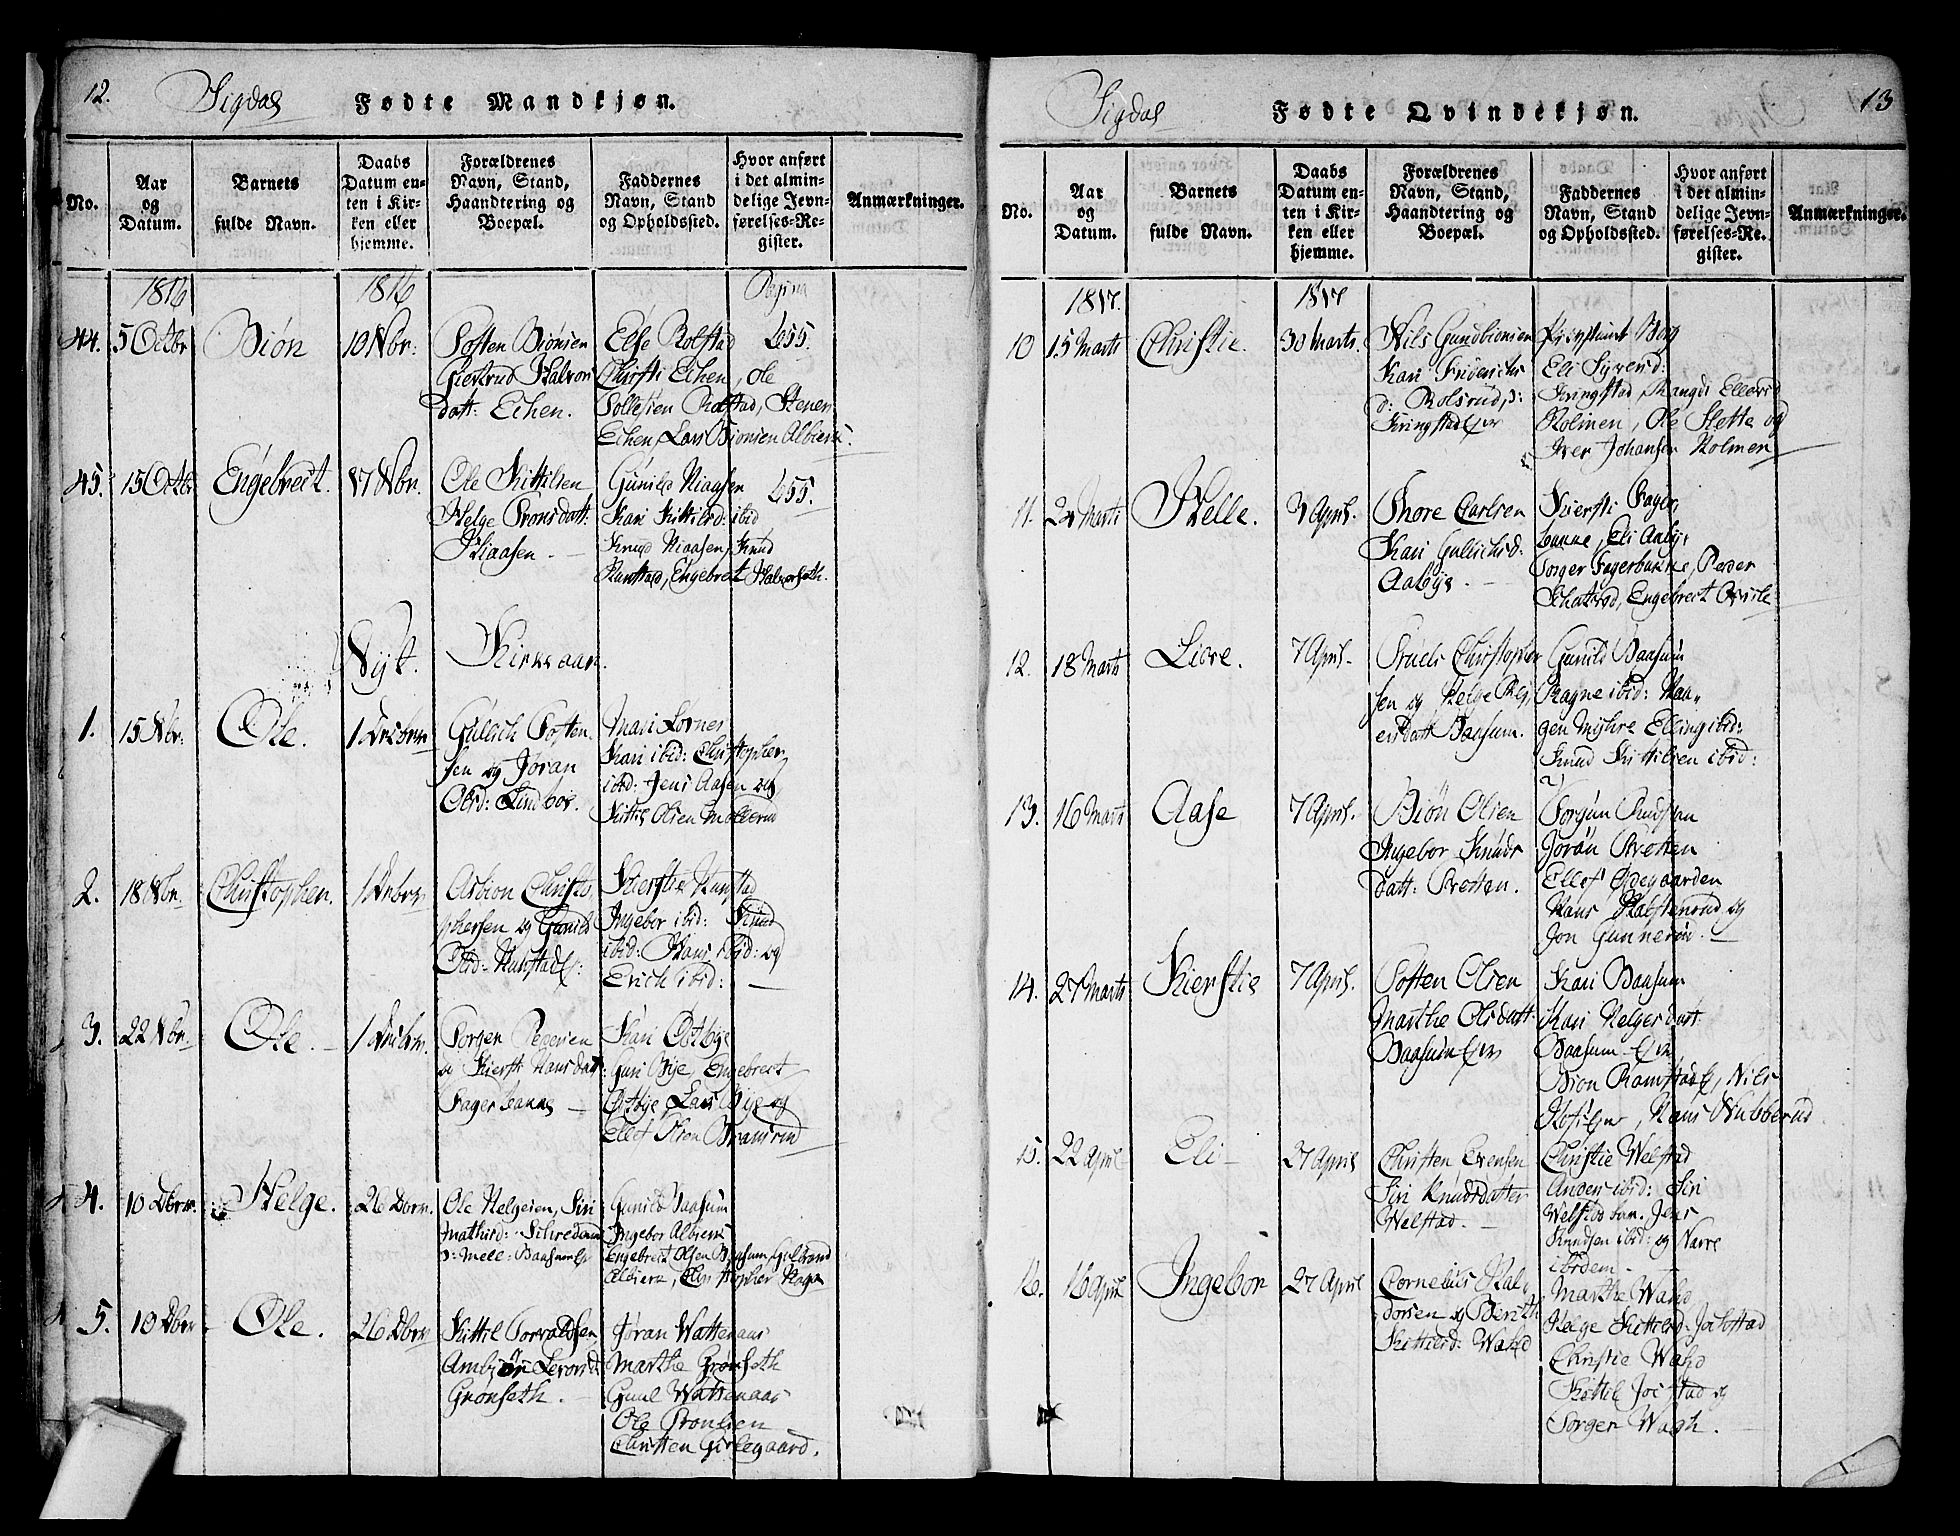 12.
Sigdal
Fødte Mandkjøn.
No.
Aar
og
Datum.
Barnets
fulde Navn.
Daabs
Datum en-
ten i Kir-
ken eller
hjemme.
Forældrenes
Navn, Stand,
Haandtering og
Boepæl.
Faddernes
Navn, Stand
og Opholdssted.
Hvor anført
i det almin-
delige Jevn-
førelses-Re-
gister.
Anmærkninger.
1816
1816
Pagina
44.
5 Octbr
Biøn
10 Nbr:
Tosten Biønsen
Giertrud Halvors
datt: Echen.
Else Rolstad
Christi Echen, Ole
Tollefsen Rolstad, Stener
Echen, Lars Biønsen Albiern.
655.
45.
15 Octbr
Engebreit.
17 Nbr.
Ole Kittilsen
Helge Tronsdatt:
Niaasen.
Gunild Niaasen
Kari Kittilsd: ibid
Knud Niaasen, Knud
Runstad, Engebret Halvorseth.
655.
Nyt. Kirkeaar.
1.
15 Nbr:
Ole.
1 Decbrm
Gullich Tosten-
sen og Jøran
Olsd: Lindboe.
Mari Lovnes
Kari ibid: Christopher
ibid: Jens Aasen og
Kittil Olsen Mollerud
2.
18 Nbr.
Christopher.
1 Decbrm
Asbiøn Christo-
phersen og Gunild
Olsd: Runstad
Kierstie Runstad
Ingebor ibid: Knud
ibid: Hans ibid: og
Erich ibid:
3.
22 Nbr.
Ole.
1 Decbrm.
Torger Pedersen
og Kiersti Hansdatt:
Fagerbakke
Kari Østbye
Guri Bye, Engebrect
Østbye, Lars Bye og
Ellef Olsen Bransrud
4.
10 Dbrm.
Helge.
26 Dbrm.
Ole Helgesen, Siri
Mathisd:
Baasum
Gunild Baasum
Ingebor Albiern
Engebrect Olsen Baasum, Gulbrand
Albiern, Christopher Hagen
5.
10 Dbrm
Ole.
26 Dbrm
Kittil Torvaldsen
Ambiør Levorsd
Grønseth.
Jøran Wattenaas
Marthe Grønseth
Gunl Wattenaas
Ole Tronsen
Christen Girlegaard.
13
Sigdal
Fødte Qvindekjøn.
No.
Aar
og
Datum.
Barnets
fulde Navn.
Daabs
Datum en-
ten i Kir-
ken eller
hjemme.
Forældrenes
Navn, Stand,
Haandtering og
Boepæl.
Faddernes
Navn, Stand
og Opholdssted.
Hvor anført
i det almin-
delige Jevn-
førelses-Re-
gister.
Anmærkninger.
1817.
1817
10
15 Marts
Christie.
30 Marts.
Nils Gundbiønsen
Kari Friderichs
d: Rolsrud,
Kringstadejer
Bog
Eli Syversd:
Kringstad, Mangds Ellevsd
Holmen, Ole Slette og
Iver Johansen Holmen
11.
24 Marts
Helle.
3 April.
Thore Carlsen
Kari Gulbrichsd:
Aabye.
Kiersti Fager-
banne, Eli Aaby,
Torger Fagerbakke, Peder
Schattrud, Engebrect Qvisle
12.
18 Marts
Livre.
7 April.
Truels Christopher
sen og Helge Rej-
ersdatt Baasum.
Gunild Baasum
Ragne ibid: Haa-
gen Mishre Elling ibid:
Knud Kittilsen ibid:
13.
16 Marts
Aase
7 April.
Biøn Olsen
Ingebor Knuds
datt: Bresten.
Torgun Rudstan
Jørån Bresten
Ellef Ødegaarden
Hans Halstensrud og
Jon Gunnerøn.
14.
27 Marts
Kierstie
7 April.
Tosten Olsen
Marthe Olsdatt
Baasumejer
Kari Baasum
Kari Helgesdatt:
Baasum-ejer
Biøn Ramstad, Nils
Hans Nubberud
15.
22 April
Eli
27 April
Christen Evensen
Siri Knudsdatter
Welstad.
Christie Welstad
Anders ibid: Siri
Welstadbam. Jens
Knudsen ibid: og Narve
ibidem.
16.
16 April
Ingebor
27 April
Cornelius Hal-
dorsen og Berith
Kittilsd: Wahd
Marthe Wahd
Helge Kittilsd: Jochstad
Christie Wahd
Kittil Jocstad og
Torger Wagh.